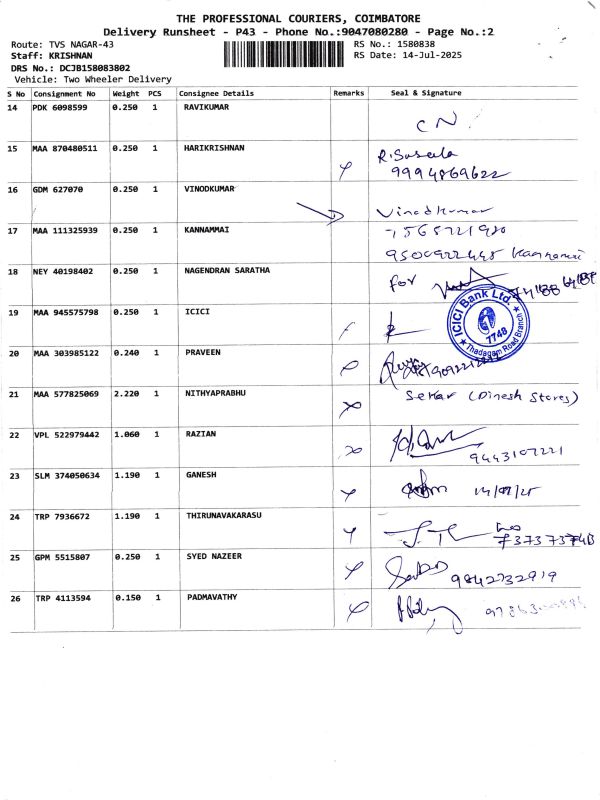 THE PROFESSIONAL COURIERS, COIMBATORE
Delivery Runsheet - P43 - Phone No.:9047080280 - Page No.:2
Route: TVS NAGAR-43 RS No.: 1580838
Staff: KRISHNAN RS Date: 14-Jul-2025
DRS No.: DCJB158083802
Vehicle: Two Wheeler Delivery
S No Consignment No Weight PCS Consignee Details Remarks Seal & Signature
14 PDK 6098599 0.250 1 RAVIKUMAR
CN
15 MAA 870480511 0.250 1 HARIKRISHNAN R.Suseela
9994869622
16 GDM 627070 0.250 1 VINODKUMAR
Vinodkumar
17 MAA 111325939 0.250 1 KANNAMMAI
18 NEY 40198402 0.250 1 NAGENDRAN SARATHA
for
19 MAA 945575798 0.250 1 ICICI
ICICI Bank Ltd.
7748
Thadagam Road Branch
20 MAA 303985122 0.240 1 PRAVEEN
21 MAA 577825069 2.220 1 NITHYAPRABHU Sekar (Dinesh Stores)
22 VPL 522979442 1.060 1 RAZIAN
9443107221
23 SLM 374050634 1.190 1 GANESH 14/07/25
24 TRP 7936672 1.190 1 THIRUNAVAKARASU
25 GPM 5515807 0.250 1 SYED NAZEER
9842732919
26 TRP 4113594 0.150 1 PADMAVATHY